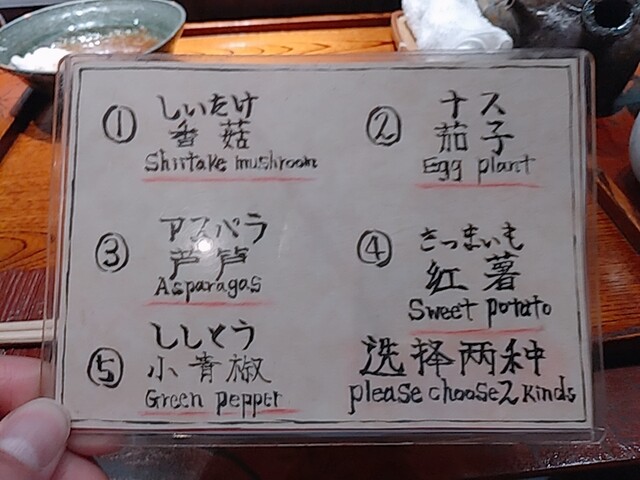 ① しいたけ
香菇
Shiitake mushroom
② ナス
茄子
Egg plant
③ アスパラ
芦笋
Asparagas
④ さつまいも
红薯
Sweet potato
⑤ ししとう
小青椒
Green pepper
选择两种
please choose 2 kinds